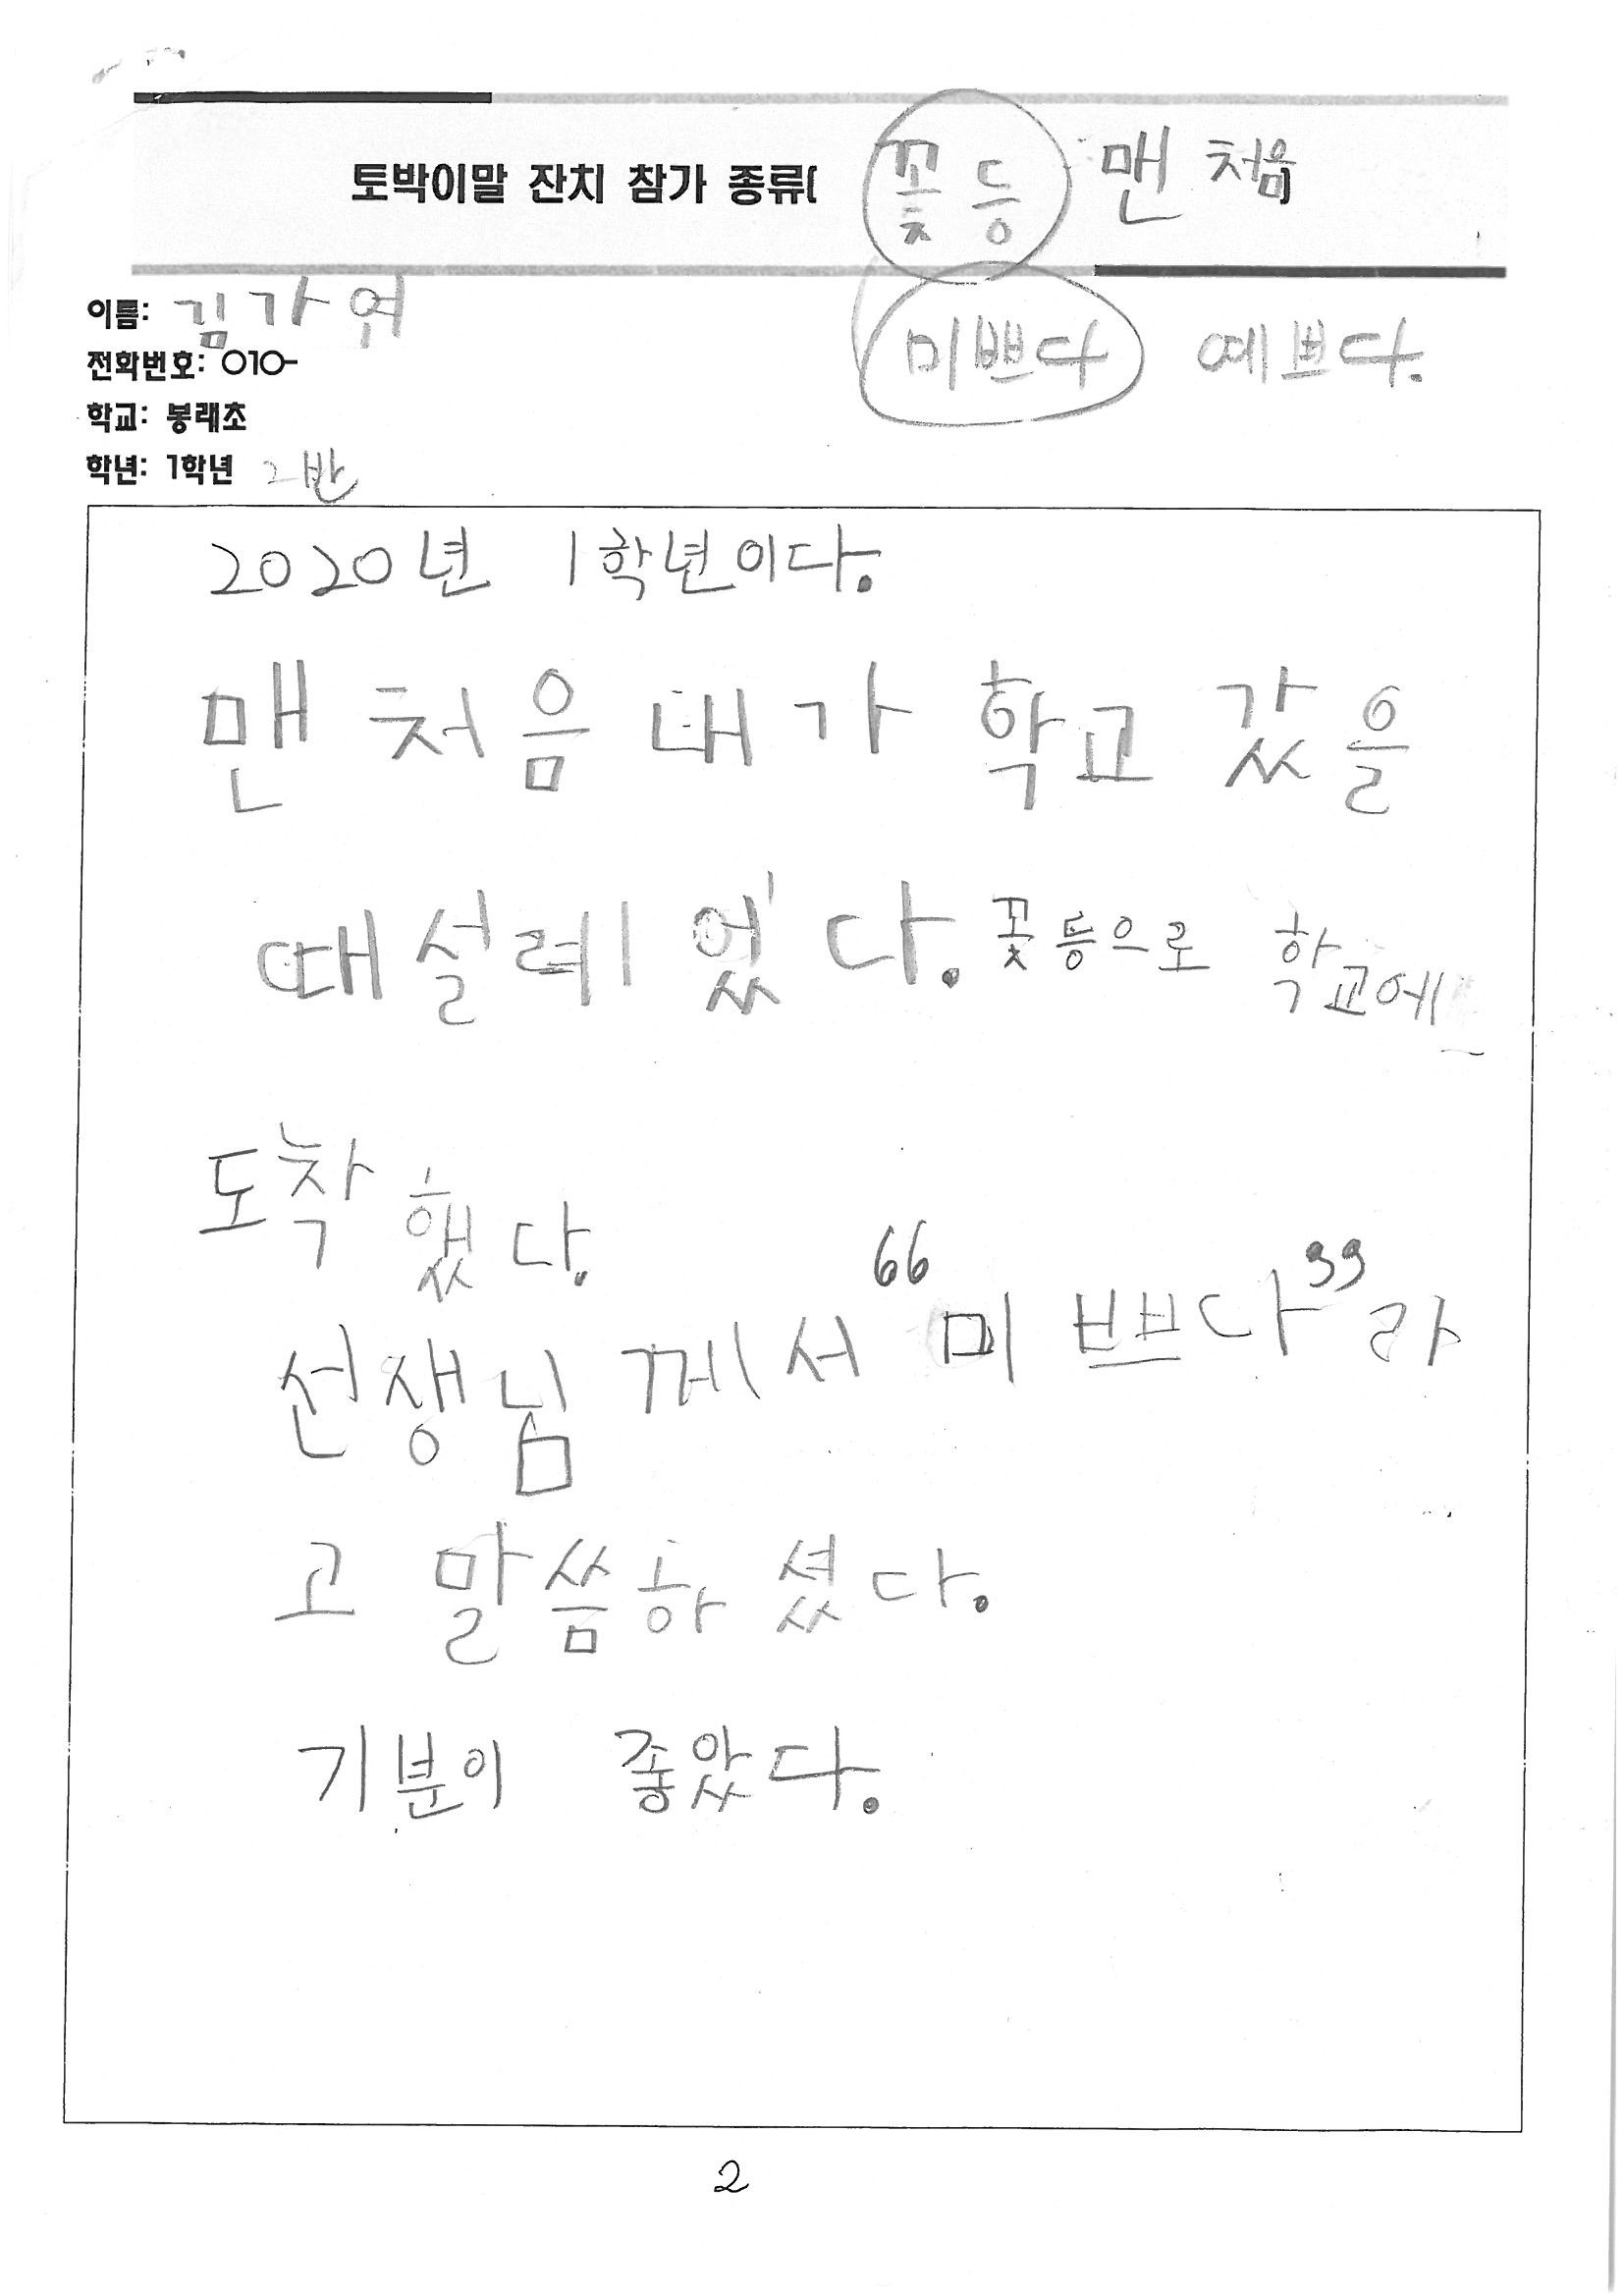 토박이말 잔치 참가 종류( 꽃등 맨 처음 )
이름: 김가연
미쁘다 예쁘다.
전화번호: 010-
학교: 봉래초
학년: 1학년 2반
2020년 1학년이다.
맨 처음 내가 학교 갔을
때 설레었다. 꽃등으로 학교에
도착 했다.
선생님 께서 "미쁘다"라
고 말씀하셨다.
기분이 좋았다.
2